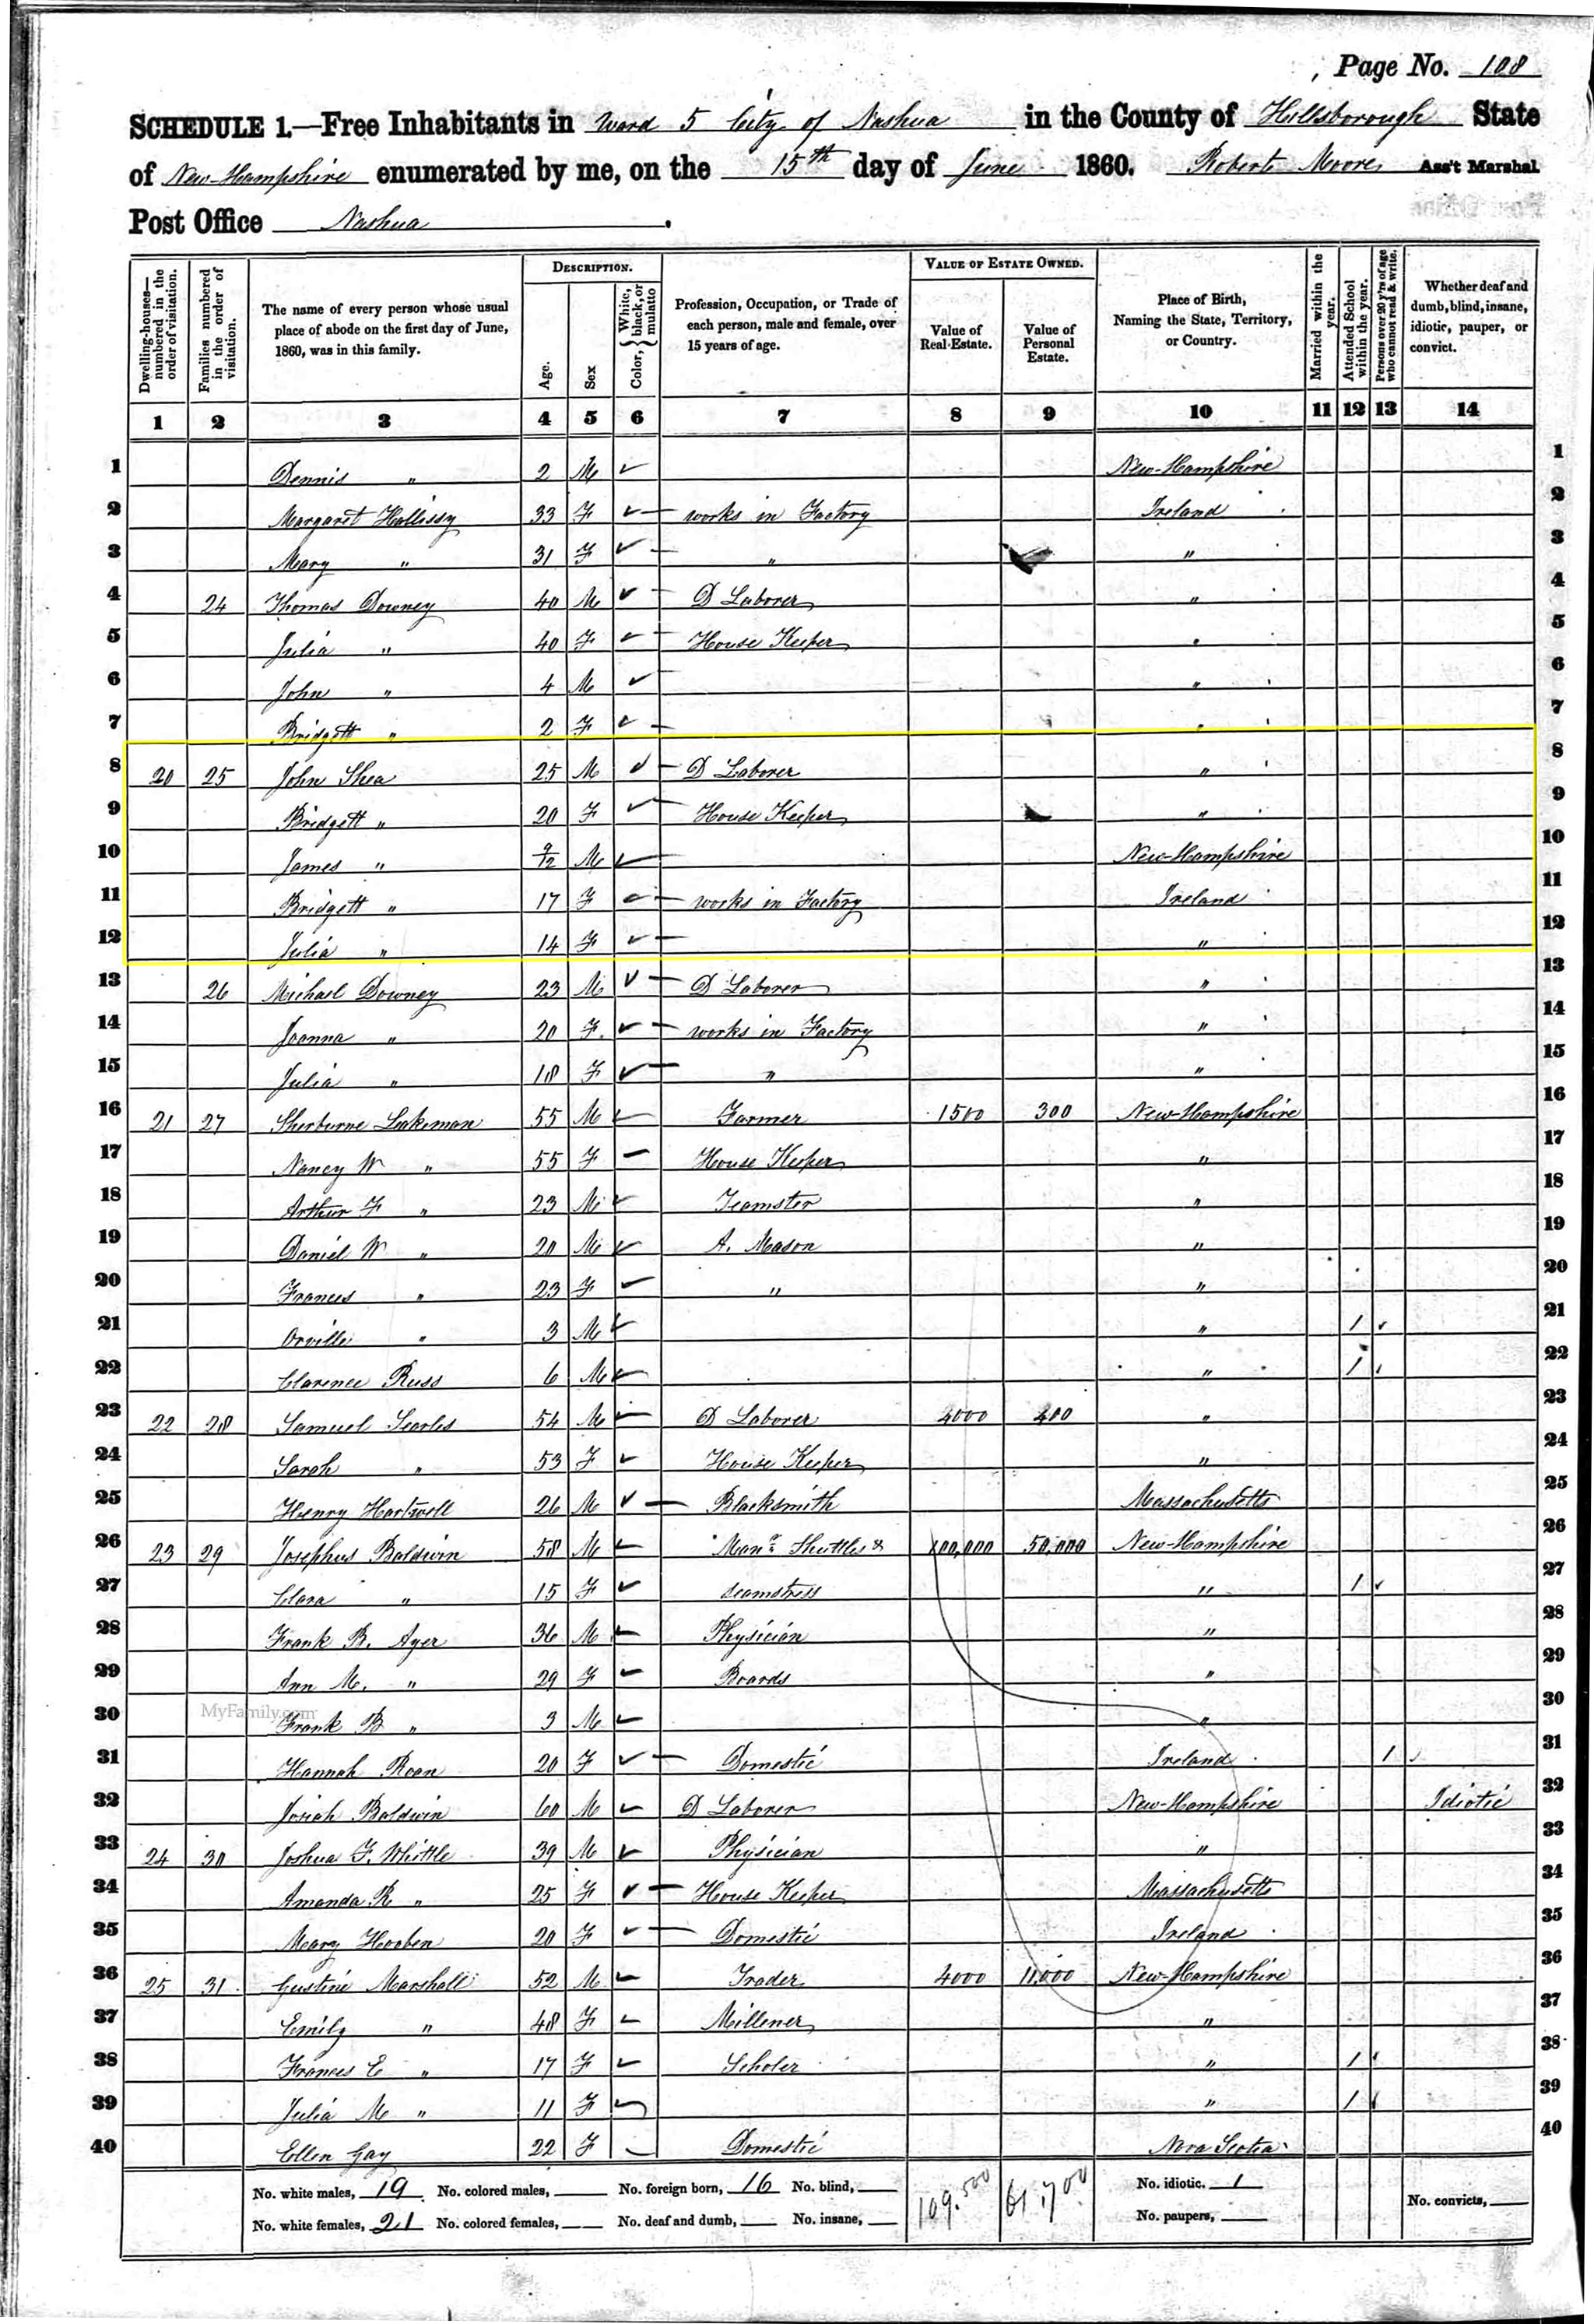 Page No. 108
SCHEDULE 1.—Free Inhabitants in Ward 5 City of Nashua in the County of Hillsborough State
of New-Hampshire enumerated by me, on the 15th day of June 1860. Robert Moore, Ass't Marshal
Post Office Nashua.
DESCRIPTION. VALUE OF ESTATE OWNED.
Dwelling-houses—numbered in the order of visitation. Families numbered in the order of visitation. The name of every person whose usual place of abode on the first day of June, 1860, was in this family. Age. Sex Color, White, black, or mulatto Profession, Occupation, or Trade of each person, male and female, over 15 years of age. Value of Real Estate. Value of Personal Estate. Place of Birth, Naming the State, Territory, or Country. Married within the year. Attended School within the year. Persons over 20 y'rs of age who cannot read & write. Whether deaf and dumb, blind, insane, idiotic, pauper, or convict.
1 2 3 4 5 6 7 8 9 10 11 12 13 14
1 Dennis " 2 M New-Hampshire 1
2 Margaret Hallissy 33 F works in Factory Ireland 2
3 Mary " 31 F " " 3
4 24 Thomas Downey 40 M D Laborer " 4
5 Julia " 40 F House Keeper " 5
6 John " 4 M " 6
7 Bridgett " 2 F " 7
8 20 25 John Shea 25 M D Laborer " 8
9 Bridgett " 20 F House Keeper " 9
10 James " 9/12 M New-Hampshire 10
11 Bridgett " 17 F works in Factory Ireland 11
12 Julia " 14 F " 12
13 26 Michael Downey 23 M D Laborer " 13
14 Joanna " 20 F. works in Factory " 14
15 Julia " 18 F " " 15
16 21 27 Sherburne Lakeman 55 M Farmer 1500 300 New-Hampshire 16
17 Nancy W " 55 F House Keeper " 17
18 Arthur F " 23 M Teamster " 18
19 Daniel W " 20 M A. Mason " 19
20 Frances " 23 F " " 20
21 Orville " 3 M " 1 21
22 Clarence Russ 6 M " 1 22
23 22 28 Samuel Searles 54 M D Laborer 4000 400 " 23
24 Sarah " 53 F House Keeper " 24
25 Henry Hartwell 26 M Blacksmith Massachusetts 25
26 23 29 Josephus Baldwin 58 M Manr Shuttles & 100,000 50,000 New-Hampshire 26
27 Clara " 15 F seamstress " 1 27
28 Frank B. Ayer 36 M Physician " 28
29 Ann M. " 29 F Boards " 29
30 Frank B " 3 M " 30
MyFamily.com
31 Hannah Roan 20 F Domestic Ireland 1 31
32 Josiah Baldwin 60 M D Laborer New-Hampshire Idiotic 32
33 24 30 Joshua F. Whittle 39 M Physician " 33
34 Amanda R " 25 F House Keeper Massachusetts 34
35 Mary Hooben 20 F Domestic Ireland 35
36 25 31 Gustine Marshall 52 M Trader 4000 11,000 New-Hampshire 36
37 Emily " 48 F Milliner " 37
38 Frances E " 17 F Scholer " 1 38
39 Julia M " 11 F " 1 39
40 Ellen Gay 22 F Domestic Nova Scotia 40
No. white males, 19 No. colored males, No. foreign born, 16 No. blind, 109.500 61.700 No. idiotic. 1
No. white females, 21 No. colored females, No. deaf and dumb, No. insane, No. paupers, No. convicts,